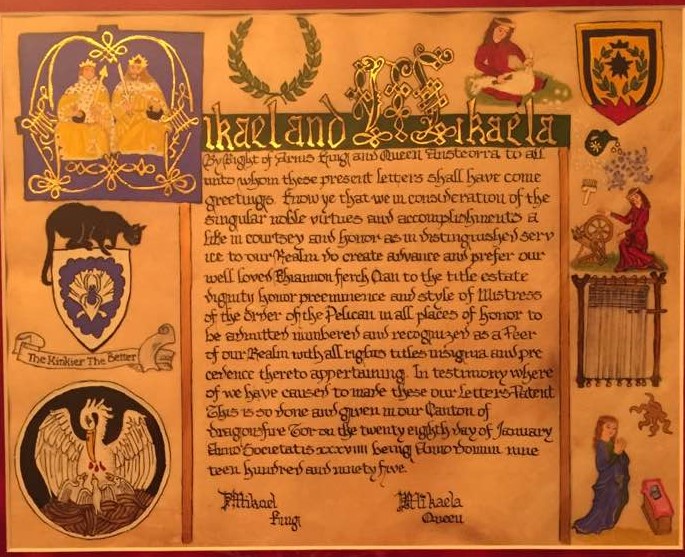 Mikael and Mikaela
By Right of Arms King and Queen Ansteorra to all
unto whom these present letters shall have come
greetings. Know ye that we in consideration of the
singular noble virtues and accomplishments a
like in courtsey and honor as in distinguished serv
ice to our Realm do create advance and prefer our
well loved Rhiannon ferch Cian to the title estate
dignity honor preeminence and style of Mistress
of the Order of the Pelican in all places of Honor to
be admitted numbered and recognized as a Peer
of our Realm with all rights titles insignia and pre
cedence thereto appertaining. In testimony where
of we have caused to made these our Letters Patent
This is so done and given in our Canton of
dragonsfire Tor on the twenty eighth day of January
Anno Societatis xxxviiii being Anno Domini nine
teen hundred and ninety five.
Mikael
King
Mikaela
Queen
The Kinkier The Better